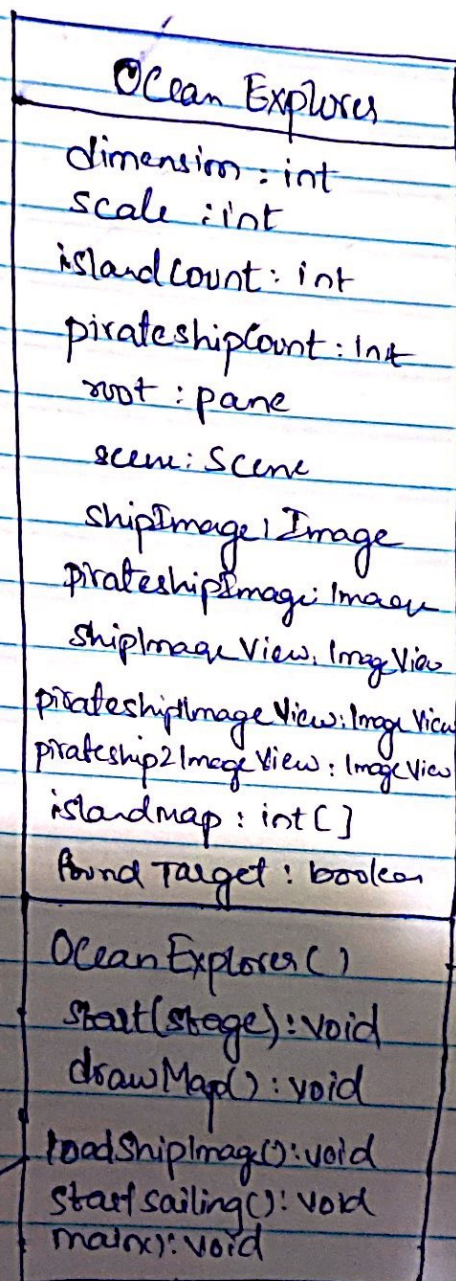 Ocean Explorer
dimension : int
scale : int
islandCount : int
pirateshipCount : Int
root : pane
scene : Scene
shipImage : Image
pirateshipImage : Image
shipImageView : ImageView
pirateshipImageView : ImageView
pirateship2ImageView : ImageView
islandmap : int[]
found Target : boolean
OceanExplorer()
start(stage) : void
drawMap() : void
loadShipImage() : void
startsailing() : void
main() : void